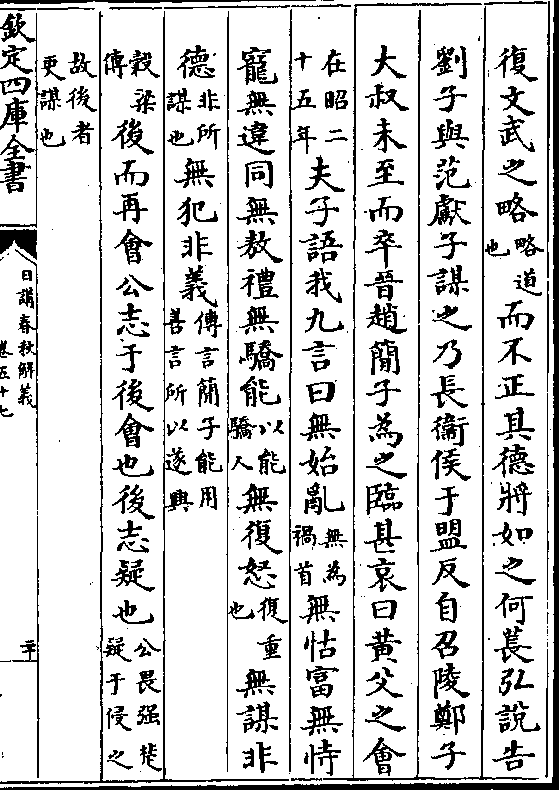 復文武之略略道也而不正其德將如之何萇弘說告
劉子與范獻子謀之乃長衞侯于盟反自召陵鄭子
大叔未至而卒晉趙簡子為之臨甚哀曰黃父之會
在昭二十五年夫子語我九言曰無始亂無為禍首無怙富無恃
寵無違同無敖禮無驕能以能驕人無復怒復重也無謀非
德非所謀也無犯非義傳言簡子能用善言所以遂興
穀梁傳後而再會公志于後會也後志疑也公畏强楚疑于侵之
故後者更謀也
欽定四庫全書
日講春秋解義
卷五十七
二十